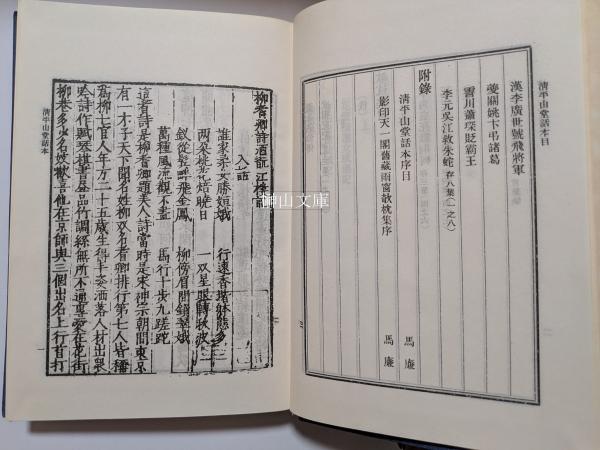 清平山堂話本目
漢李廣世號飛將軍
夔關姚卞弔諸葛
霅川蕭琛貶霸王
李元吳江救朱蛇 存八葉(一之八)
附錄
清平山堂話本序目 馬廉
影印天一閣舊藏雨窗欹枕集序 馬廉
柳耆卿詩酒翫江樓記
入話
誰家柔女勝姮娥 行速香堦體態多
兩朶桃花焙曉日 一双星眼轉秋波
釵從鬢畔飛金鳳 柳傍眉間鎖翠娥
萬種風流觀不盡 馬行十步九蹉跎
這首詩是柳耆卿題美人詩當時是宋神宗朝間東京
有一才子天下聞名姓柳双名耆卿排行第七人皆稱
爲柳七官人年方二十五歲生得丰姿洒落人材出衆
吟詩作賦琴棋書畫品竹調絲無所不通專愛在花街
柳巷多少名妓歡喜他在京師與三個出名上行首打
清平山堂話本
神山文庫